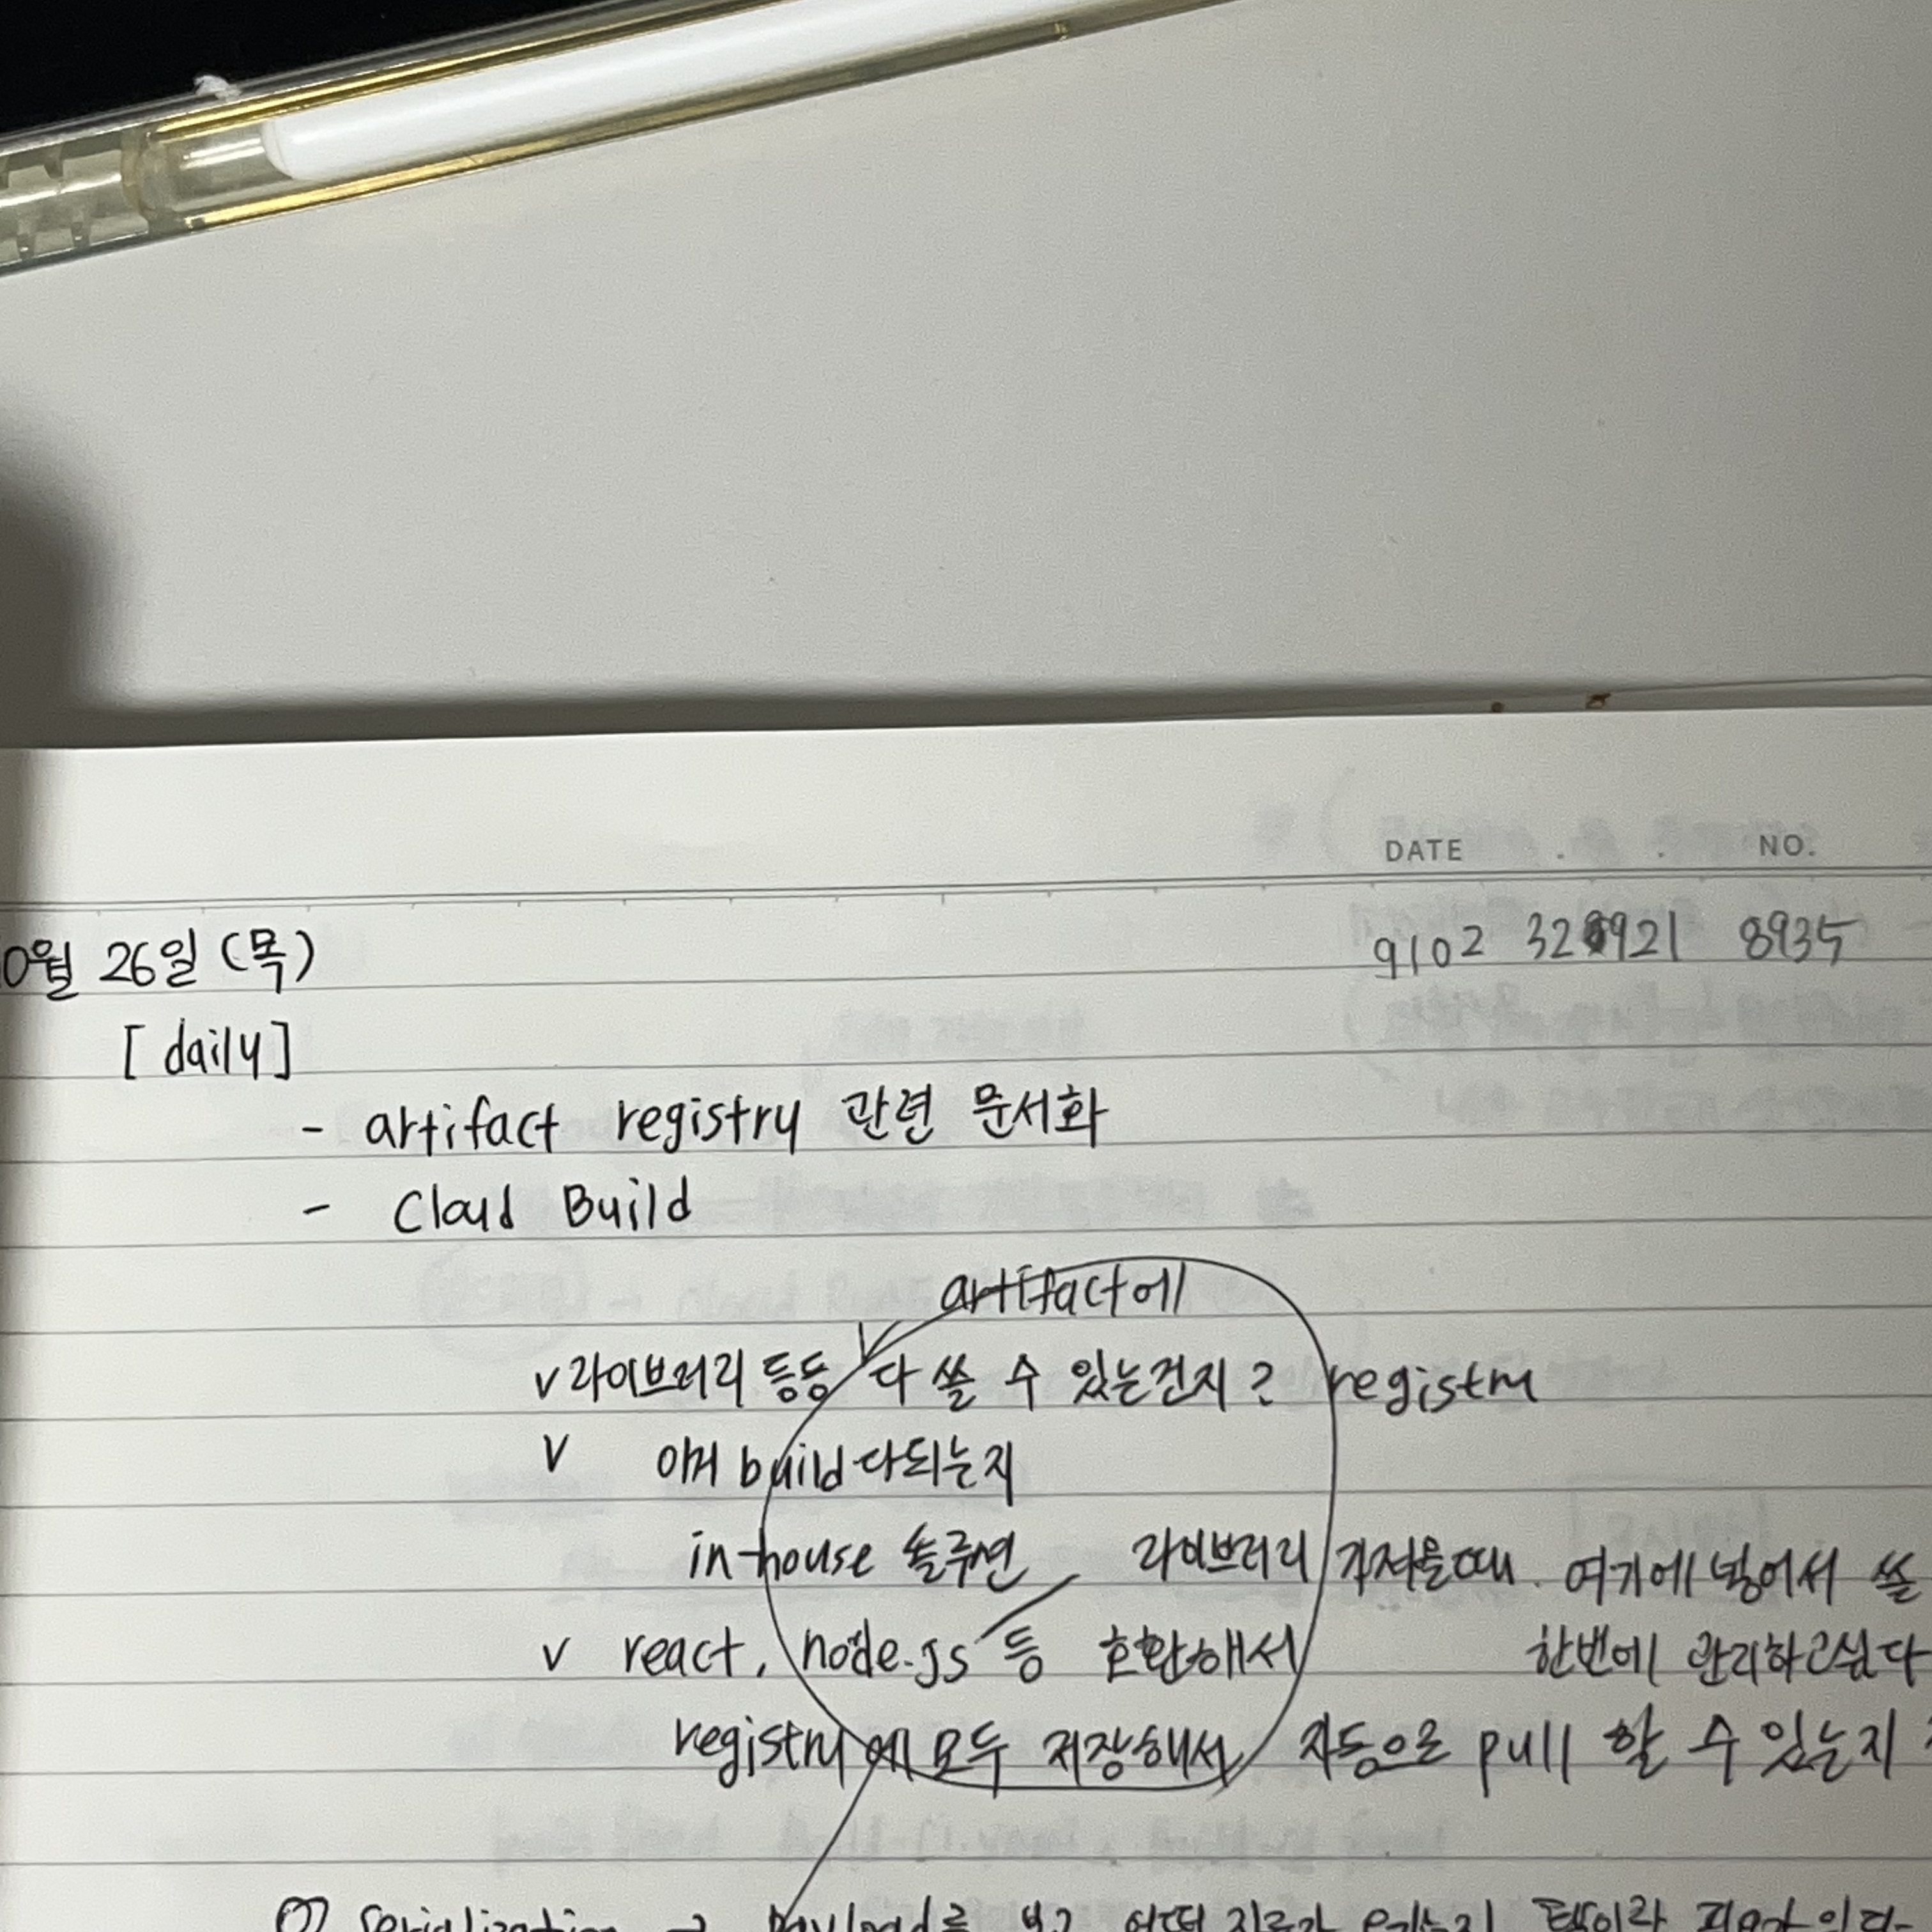 DATE . . NO.
0월 26일 (목) 9102 32 921 8935
[daily]
- artifact registry 관련 문서화
- Cloud Build
artifact에
v 라이브러리 등등 다 쓸 수 있는건지? registry
v build 다되는지
in-house 솔루션 라이브러리 여기에 넣어서 쓸
v react, node.js 등 호환해서 한번에 관리하고싶다
registry에 모두 저장해서 자동으로 pull 할 수 있는지
Serialization → payload를 보고